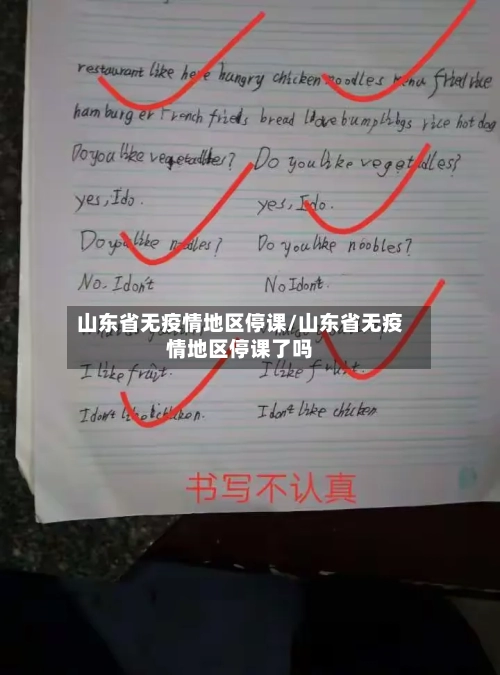 restaurant like here hungry chicken noodles menu fried rice
hamburger French frieds bread I love bumplings rice hot dog
Do you like vegetables? Do you like vegetadles?
yes, I do. yes, I do.
Do you like noodles? Do you like noobles?
No. I don't No I don't.
山东省无疫情地区停课/山东省无疫
情地区停课了吗
I like fruit. I like fruit.
I don't like chicken. I don't like chicken
书写不认真